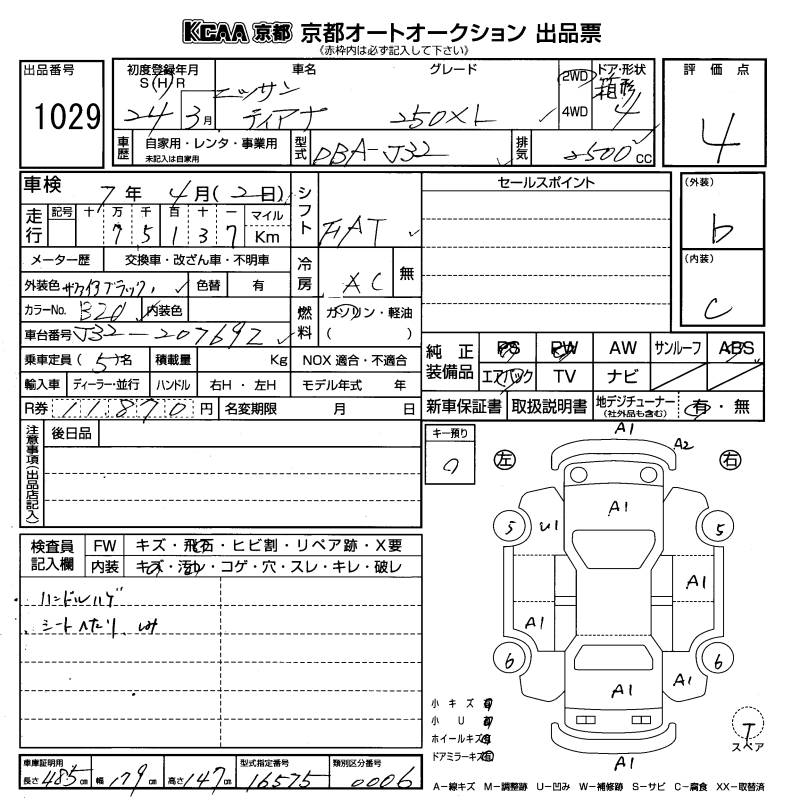 KCAA 京都 京都オートオークション 出品票
《赤枠内は必ず記入して下さい》
出品番号
1029
初度登録年月
S (H) R
24 3月
車名 グレード
ニッサン
ティアナ 250XL
2WD
4WD
ドア・形状
箱形
4
評価点
4
車歴
自家用・レンタ・事業用
未記入は自家用
型式
DBA-J32
排気
2500 CC
車検 7年 4月(2日)
走行
記号 十 万 千 百 十 一 マイル
7 5 1 3 7 Km
シフト
FAT
メーター歴 交換車・改ざん車・不明車
冷房
AC 無
外装色 サファイアブラック 色替 有
カラーNo. B20 内装色
燃料
ガソリン・軽油
( )
車台番号 J32-207692
乗車定員 (5)名 積載量 Kg NOX 適合・不適合
輸入車 ディーラー・並行 ハンドル 右H・左H モデル年式 年
R券 11,870円 名変期限 月 日
セールスポイント
(外装)
b
(内装)
C
純正装備品
PS PW AW サンルーフ ABS
エアバック TV ナビ
新車保証書 取扱説明書 地デジチューナー
(社外品も含む)
有・無
注意事項(出品店記入)
後日品
キー預り
0
左 右
A1
A2
A1
5 U1 5
A1
A1
6 6
A1 A1
A1
検査員記入欄
FW キズ・飛石・ヒビ割・リペア跡・X要
内装 キズ・汚れ・コゲ・穴・スレ・キレ・破レ
ハンドルハゲ
シートへたり、しみ
小キズ 有
小U 有
ホイールキズ 有
ドアミラーキズ 有
T
スペア
車庫証明用
長さ 485cm 幅 179cm 高さ 147cm
型式指定番号
16575
類別区分番号
0006
A-線キズ M-調整跡 U-凹み W-補修跡 S-サビ C-腐食 XX-取替済